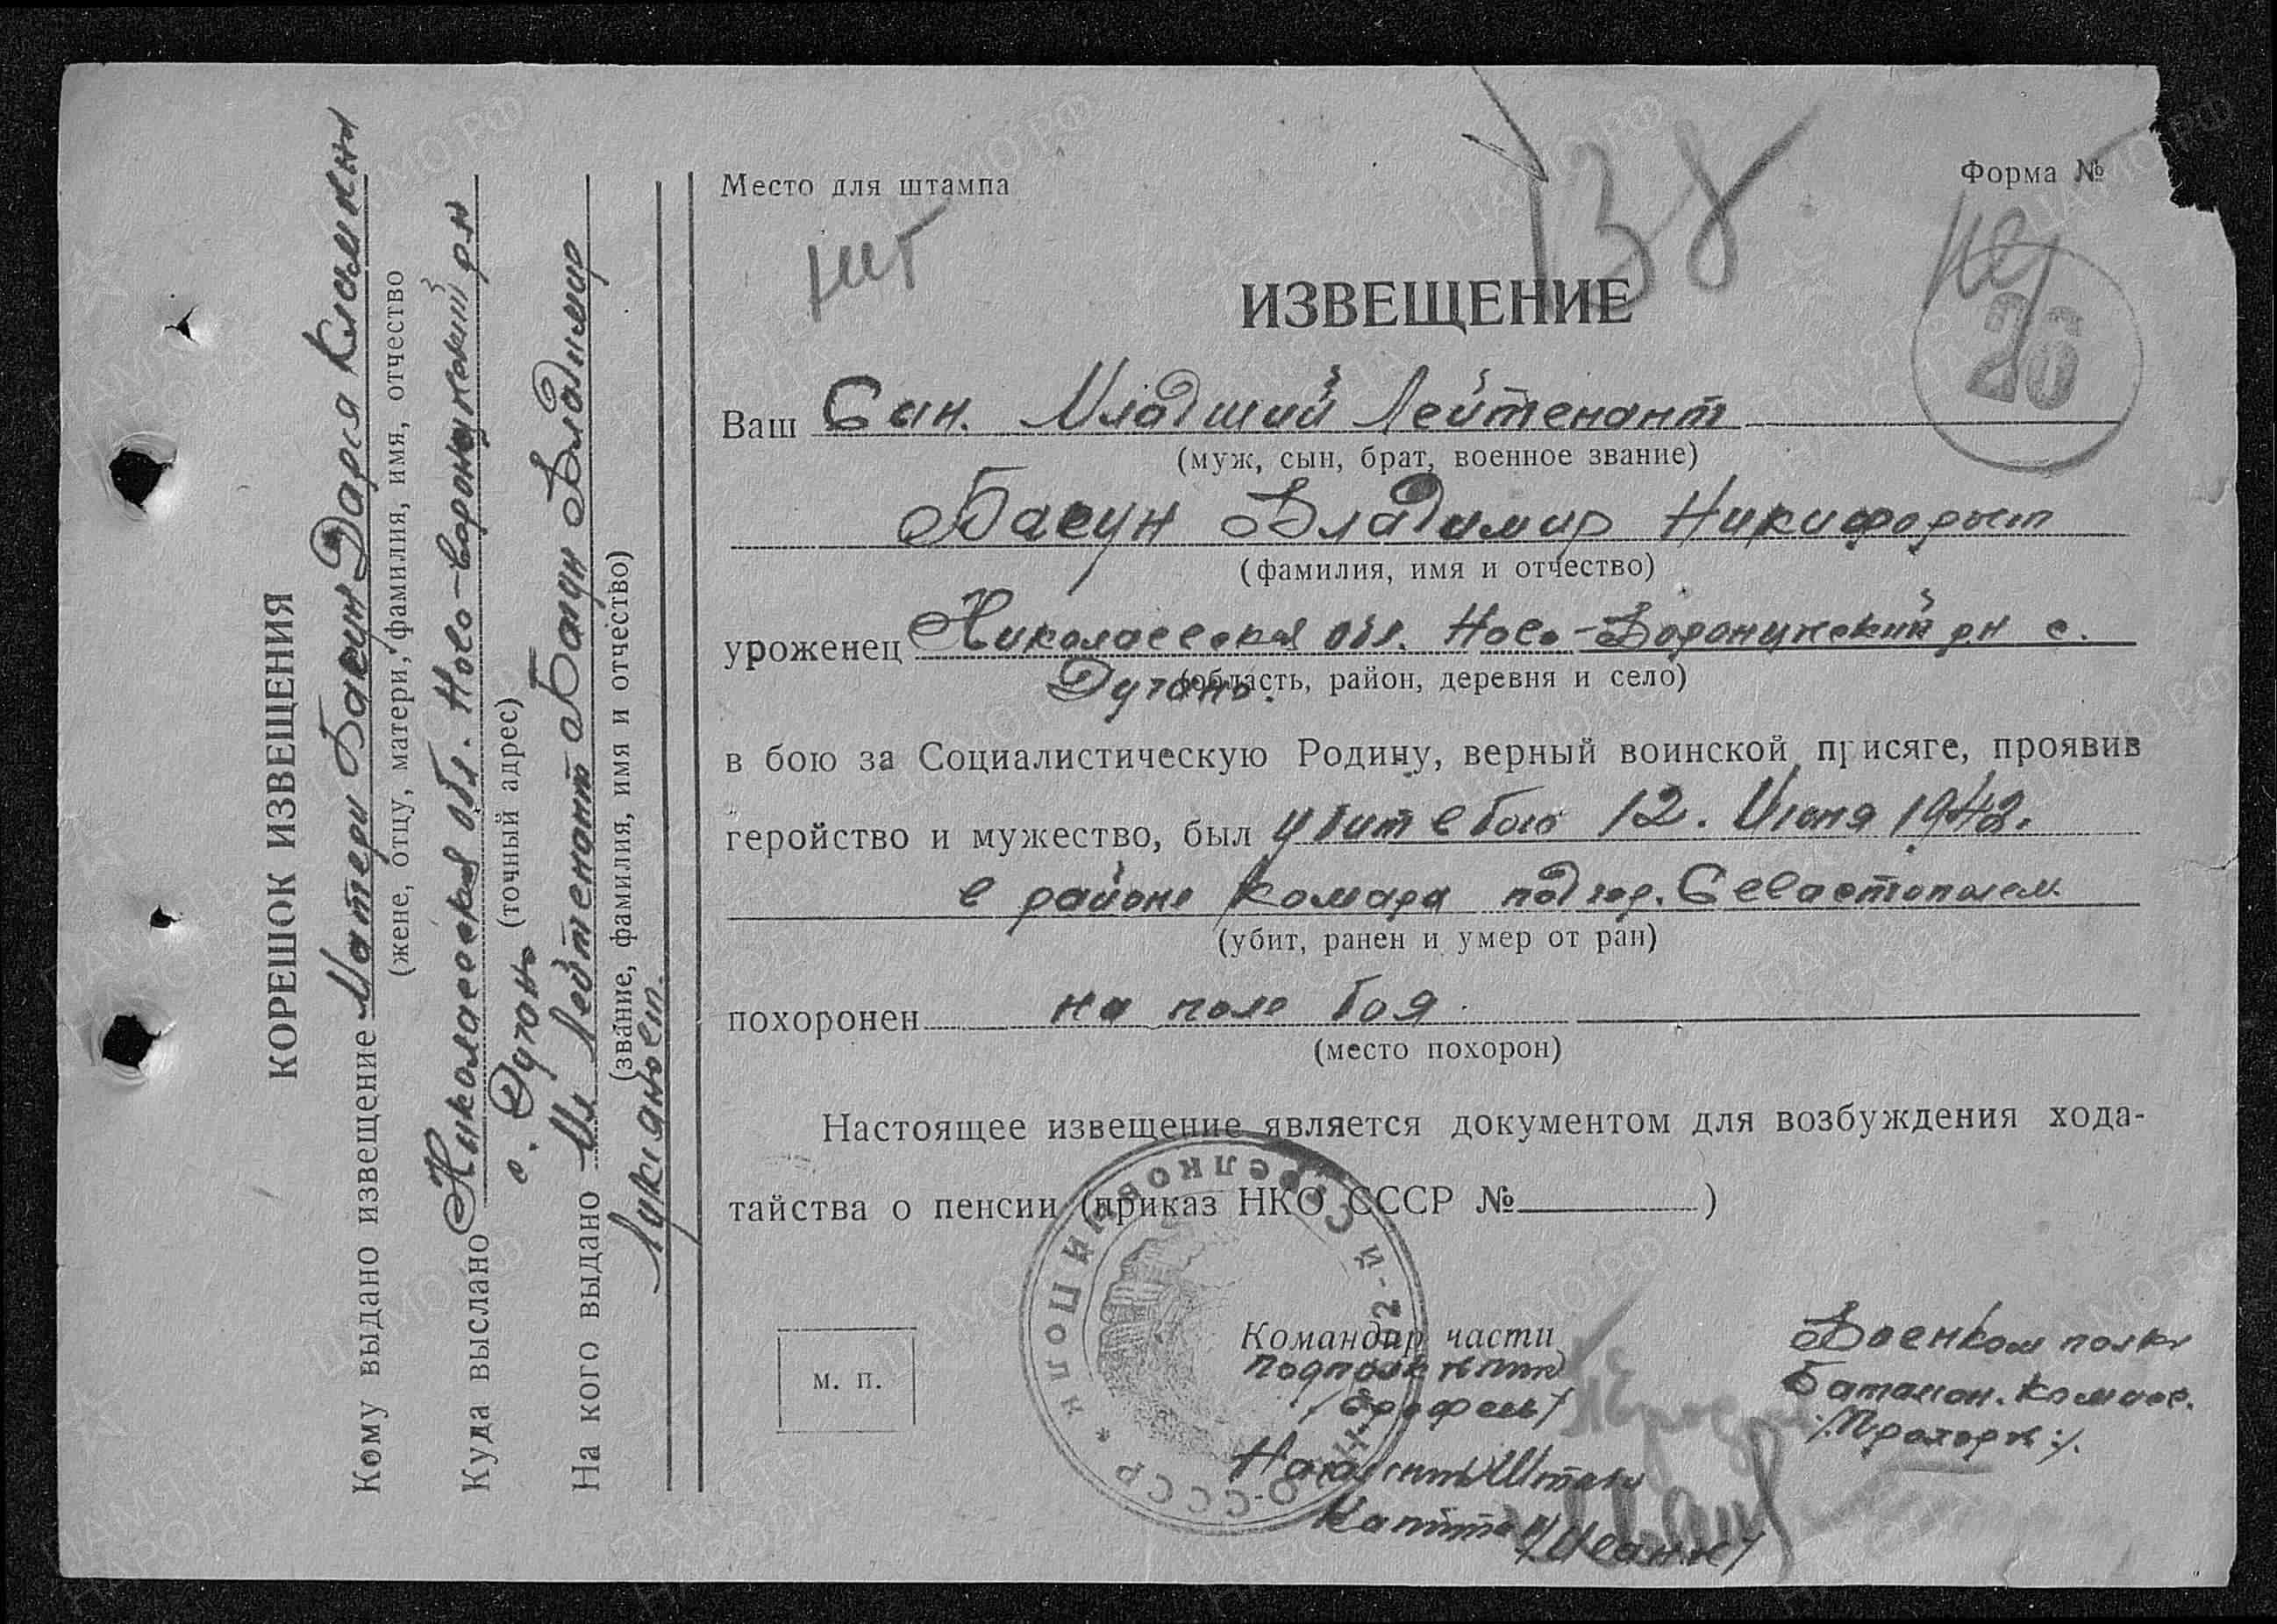 КОРЕШОК ИЗВЕЩЕНИЯ
Кому выдано извещение Матери Басун Дарья
(жене, отцу, матери, фамилия, имя, отчество
Куда выслано Николаевская обл. Ново-Воронцовский р.н
(точный адрес)
с. Дутано
На кого выдано Мл Лейтенант Басун Владимир
(звание, фамилия, имя и отчество)
Место для штампа
Форма №
138
26
ИЗВЕЩЕНИЕ
Ваш Сын. Младший Лейтенант
(муж, сын, брат, военное звание)
Басун Владимир
(фамилия, имя и отчество)
уроженец Николаевская обл. Ново-Воронцовский р.н с.
(область, район, деревня и село)
в бою за Социалистическую Родину, верный воинской присяге, проявив
геройство и мужество, был убит в бою 12. Июня 1942.
в районе Камара под гор. Севастополем.
(убит, ранен и умер от ран)
похоронен на поле боя.
(место похорон)
Настоящее извещение является документом для возбуждения хода-
тайства о пенсии (приказ НКО СССР № )
м. п.
Командир части
Военком полка
Батальон. Комисс.